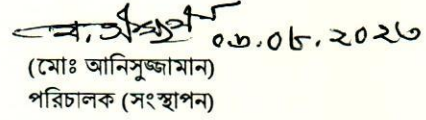 ০৩.০৮.২০২৩
(মোঃ আনিসুজ্জামান)
পরিচালক (সংস্থাপন)